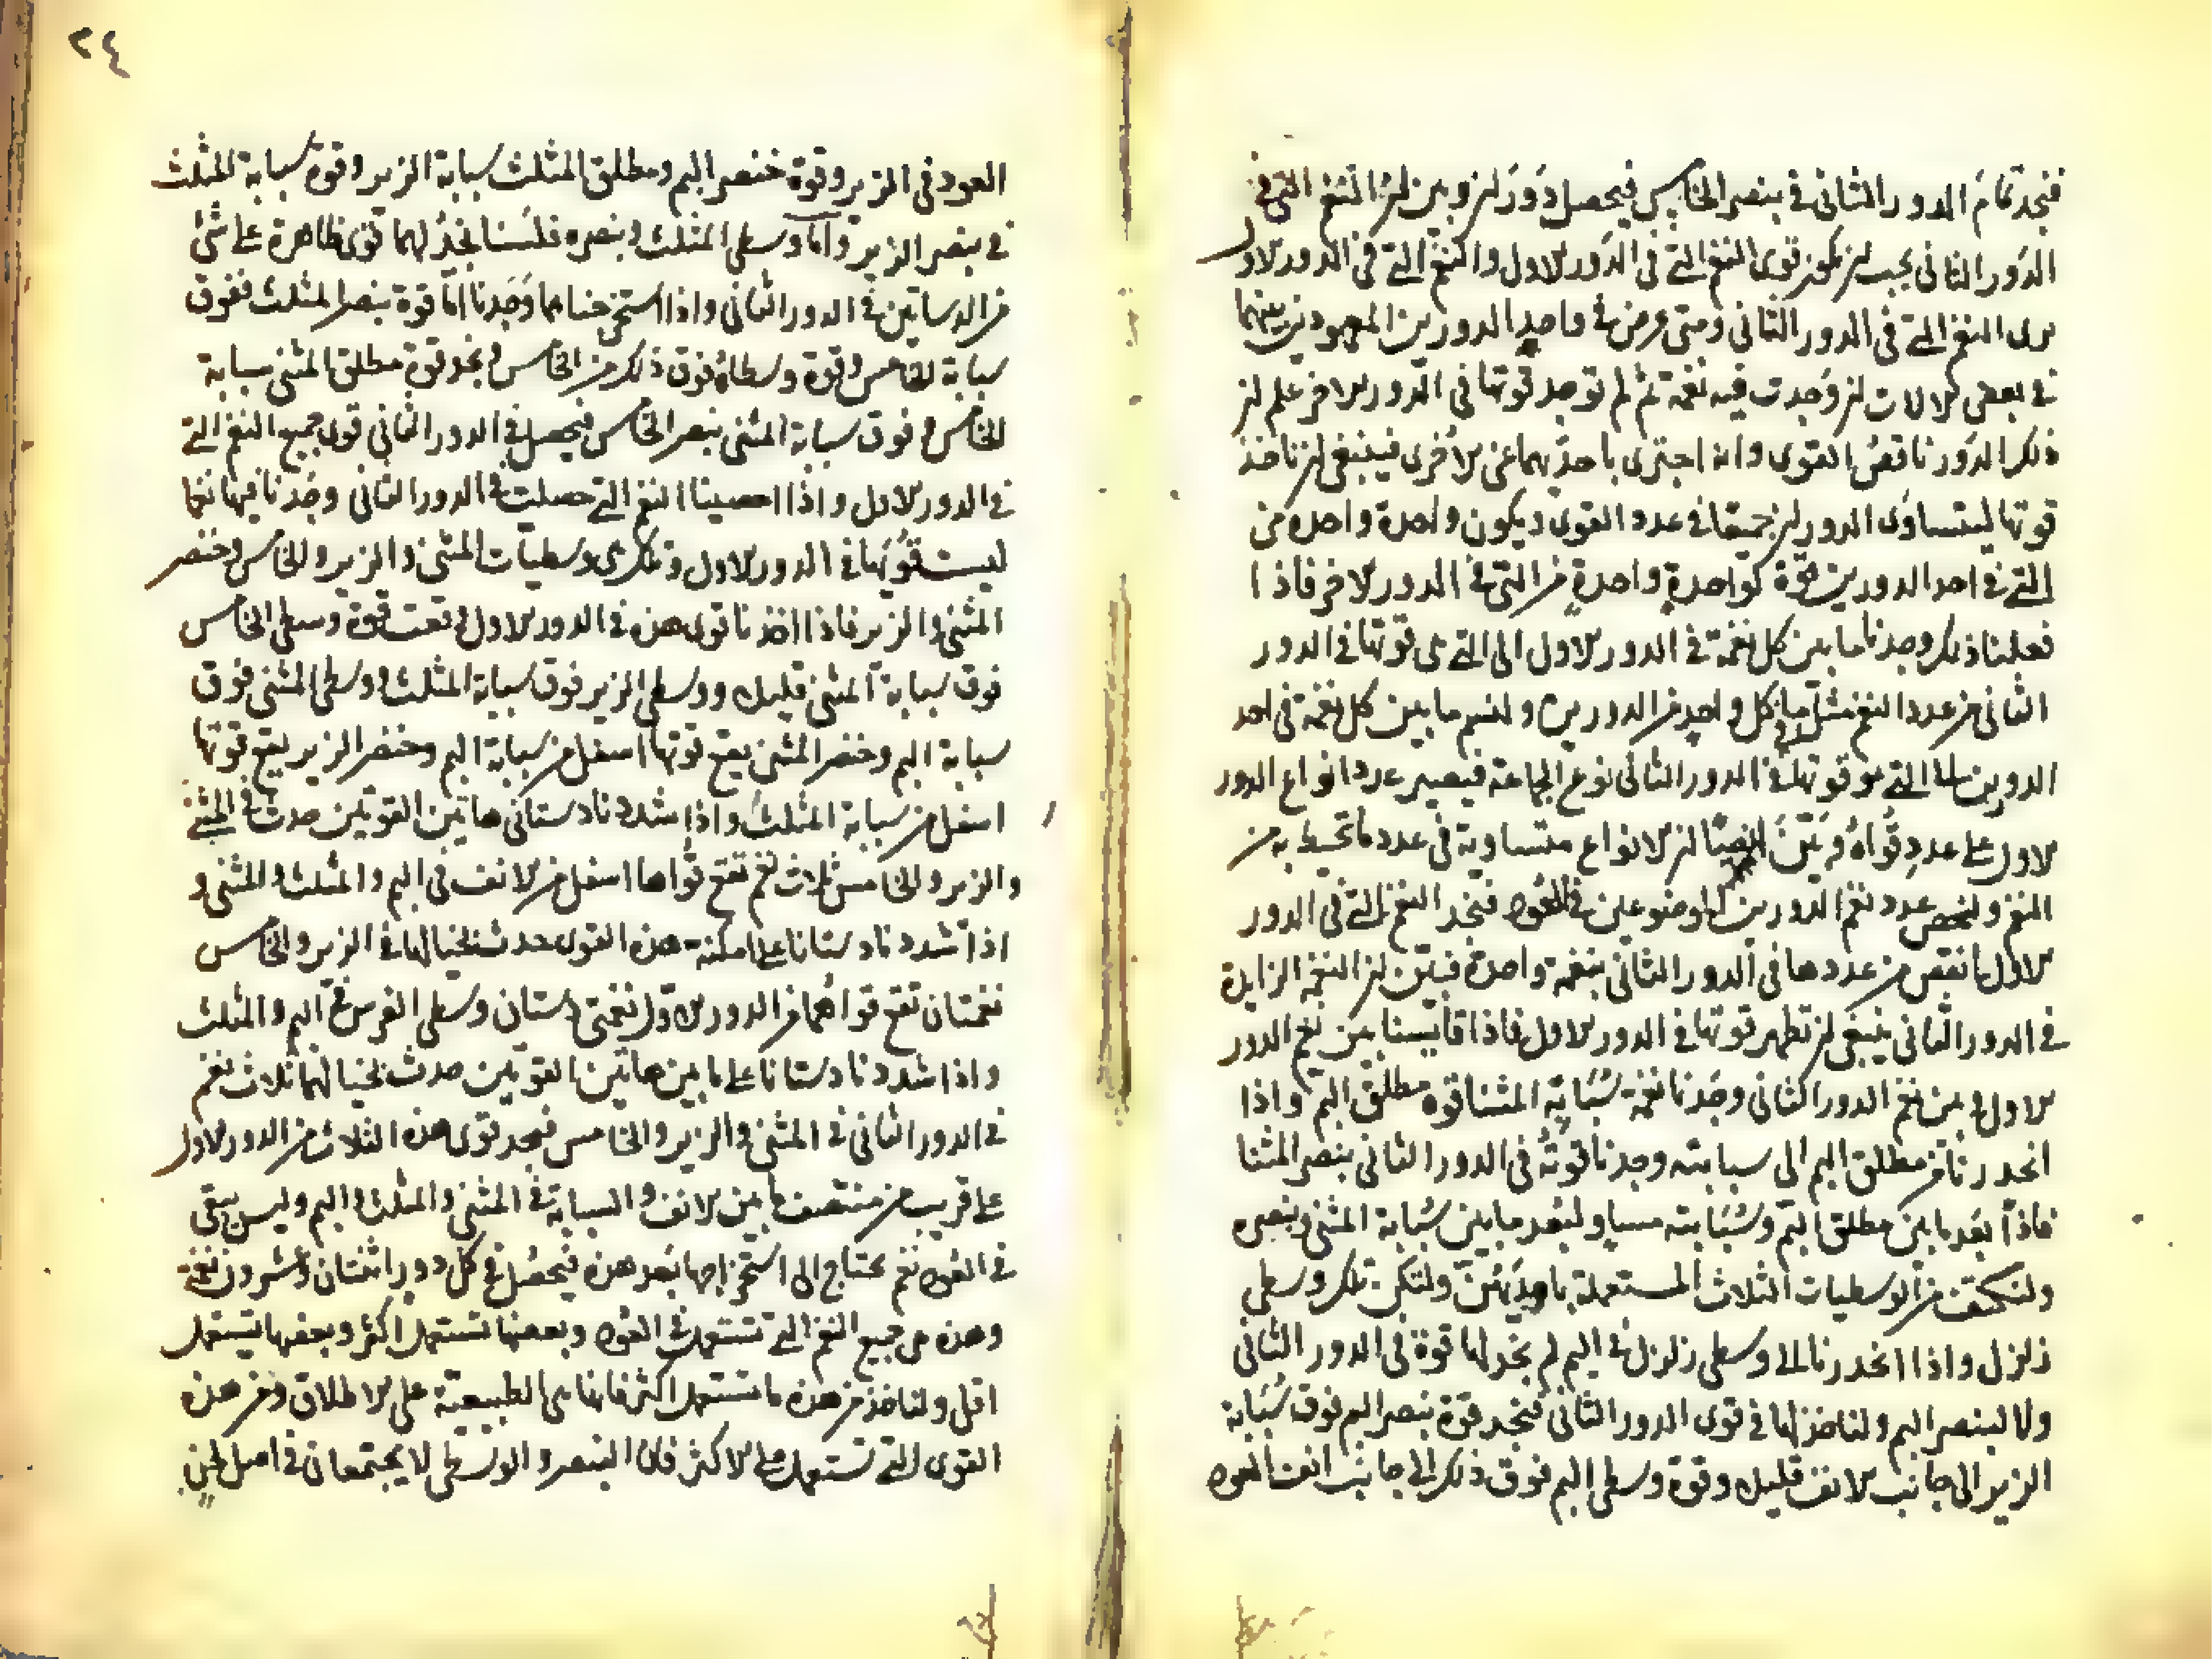 فنجد تمام الدور الثانى فى بنصر الخامس فيحصل دوران وبين ان النغم التى فى
الدور الثانى يجب ان تكون قوى النغم التى فى الدور الاول والنغم التى فى الدور الاول
هى النغم التى فى الدور الثانى ومتى عرض فى واحد الدورين المعهودين بينهما
فى بعض الالات ان وجدت فيه نغمة ثم لم توجد قوتها فى الدور الاخر علم ان
ذلك الدور ناقص القوى وانه اجتزى باحديهما عن الاخرى فينبغى ان ناخذ
قوتها ليتساوى الدوران جميعا فى عدد القوى ويكون واحدة واحدة من
التى فى احد الدورين قوة لواحدة واحدة من التى فى الدور الاخر فاذا
فعلنا ذلك وجدنا ما بين كل نغمة فى الدور الاول الى التى هى قوتها فى الدور
الثانى من عدد النغم مثل ما فى كل واحد من الدورين ولنسم ما بين كل نغمة فى احد
الدورين الى التى هو قوتها فى الدور الثانى نوع الجماعة فيصير عدد انواع الدور
الاول على عدد قواه وتبين ايضا ان الانواع متساوية فى عدد ما تحيط به من
النغم ولنحص عدد نغم الدورين الموضوعين فى العود فنجد النغم التى فى الدور
الاول ما نقص من عددها فى الدور الثانى بنغمة واحدة فبين ان النغمة الزايدة
فى الدور الثانى ينبغى ان تظهر قوتها فى الدور الاول فاذا قايسنا بين نغم الدور
الاول وبين نغم الدور الثانى وجدنا نغمة سبابة المثنا قوة مطلق البم واذا
انحدرنا من مطلق البم الى سبابته وجدنا قوته فى الدور الثانى بنصر المثنا
فاذا بعد ما بين مطلق البم وسبابته مساو لبعد ما بين سبابة المثنى وبنصره
ولنكتف من الوسطيات الثلاث المستعملة باحديهن ولتكن تلك وسطى
زلزل واذا انحدرنا الى وسطى زلزل فى البم لم نجد لها قوة فى الدور الثانى
ولا لبنصر البم ولناخذ لها فى قوى الدور الثانى فنجد قوة بنصر البم فوق سبابة
الزير الى جانب الانف قليلا وقوة وسطى البم فوق ذلك الى جانب انف العود
٢٤
العود فى الزير وقوة خنصر البم ومطلق المثلث سبابة الزير وقوة سبابة المثلث
فى بنصر الزير واما وسطى المثلث وبنصره فلسنا نجد لهما قوى ظاهرة على شى
من الدساتين فى الدور الثانى واذا استخرجناهما وجدنا اما قوة بنصر المثلث ففوق
سبابة الخامس وقوة وسطاه فوق ذلك من الخامس ونجد قوة مطلق المثنى سبابة
الخامس وفوق سبابة المثنى بنصر الخامس فيحصل فى الدور الثانى قوى جميع النغم التى
فى الدور الاول واذا احصينا النغم التى حصلت فى الدور الثانى وجدنا فيها نغما
ليست قوتها فى الدور الاول وتلك هى وسطيات المثنى والزير والخامس وخنصر
المثنى والزير فاذا اخذنا قوى هذه فى الدور الاول وقعت قوة وسطى الخامس
فوق سبابة المثنى قليلا ووسطى الزير فوق سبابة المثلث ووسطى المثنى فوق
سبابة البم وخنصر المثنى يقع قوتها اسفل من سبابة البم وخنصر الزير يقع قوتها
اسفل من سبابة المثلث واذا شددنا دستانى هاتين القوتين حدث فى المثنى
والزير والخامس ثلاث نغم تقع قواها اسفل من الانف فى البم والمثلث والمثنى و
اذا شددنا دستانا على امكنة هذه القوى حدث بحيالها فى الزير والخامس
نغمتان تقع قواهما من الدور الاول نغمتى دستان وسطى الفرس فى البم والمثلث
واذا شددنا دستانا على ما بين هاتين القوتين حدث بحيالهما ثلاث نغم
فى الدور الثانى فى المثنى والزير والخامس فنجد قوى هذه الثلاث من الدور الاول
على قريب من منتصف ما بين الانف والسبابة فى المثنى والمثلث والبم وليس يبقى
فى العود نغم يحتاج الى استخراجها بعد هذه فيحصل فى كل دور اثنتان وعشرون نغمة
وهذه هى جميع النغم التى تستعمل فى العود وبعضها تستعمل اكثر وبعضها يستعمل
اقل ولناخذ من هذه ما تستعمل اكثر فانها هى الطبيعية على الاطلاق ومن هذه
القوى التى تستعمل على الاكثر فان البنصر والوسطى لا يجتمعان فى اصل لحن